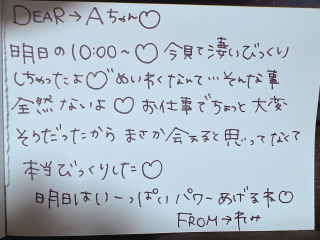 DEAR→Aちゃん♡
明日の10:00〜♡今見て凄いびっくり
しちゃったよ♡めいわくなんて…そんな事
全然ないよ♡お仕事でちょっと大変
そうだったから まさか会えると思ってなくて
本当びっくりした♡
明日はいーっぱいパワーあげるね♡
FROM→れみ